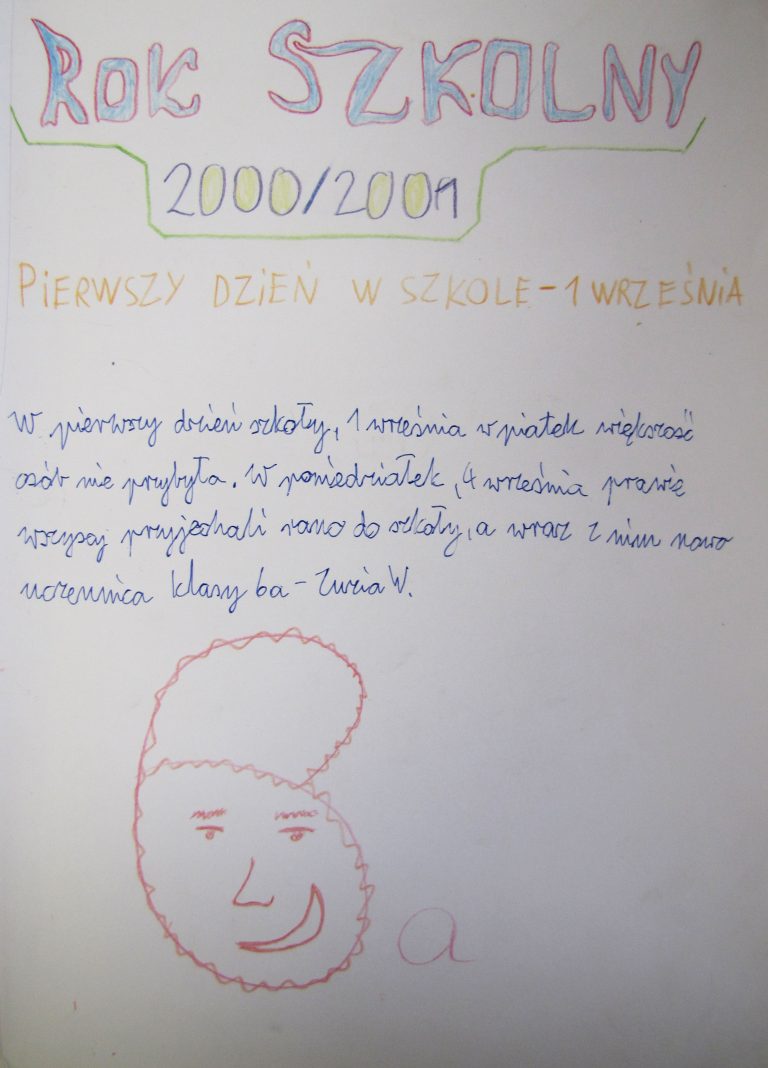 ROK SZKOLNY
2000/2001
PIERWSZY DZIEŃ W SZKOLE - 1 WRZEŚNIA
W pierwszy dzień szkoły, 1 września w piątek większość
osób nie przybyła. W poniedziałek, 4 września prawie
wszyscy przyjechali rano do szkoły, a wraz z nim nowa
uczennica klasy 6a - Zuzia W.
6 a